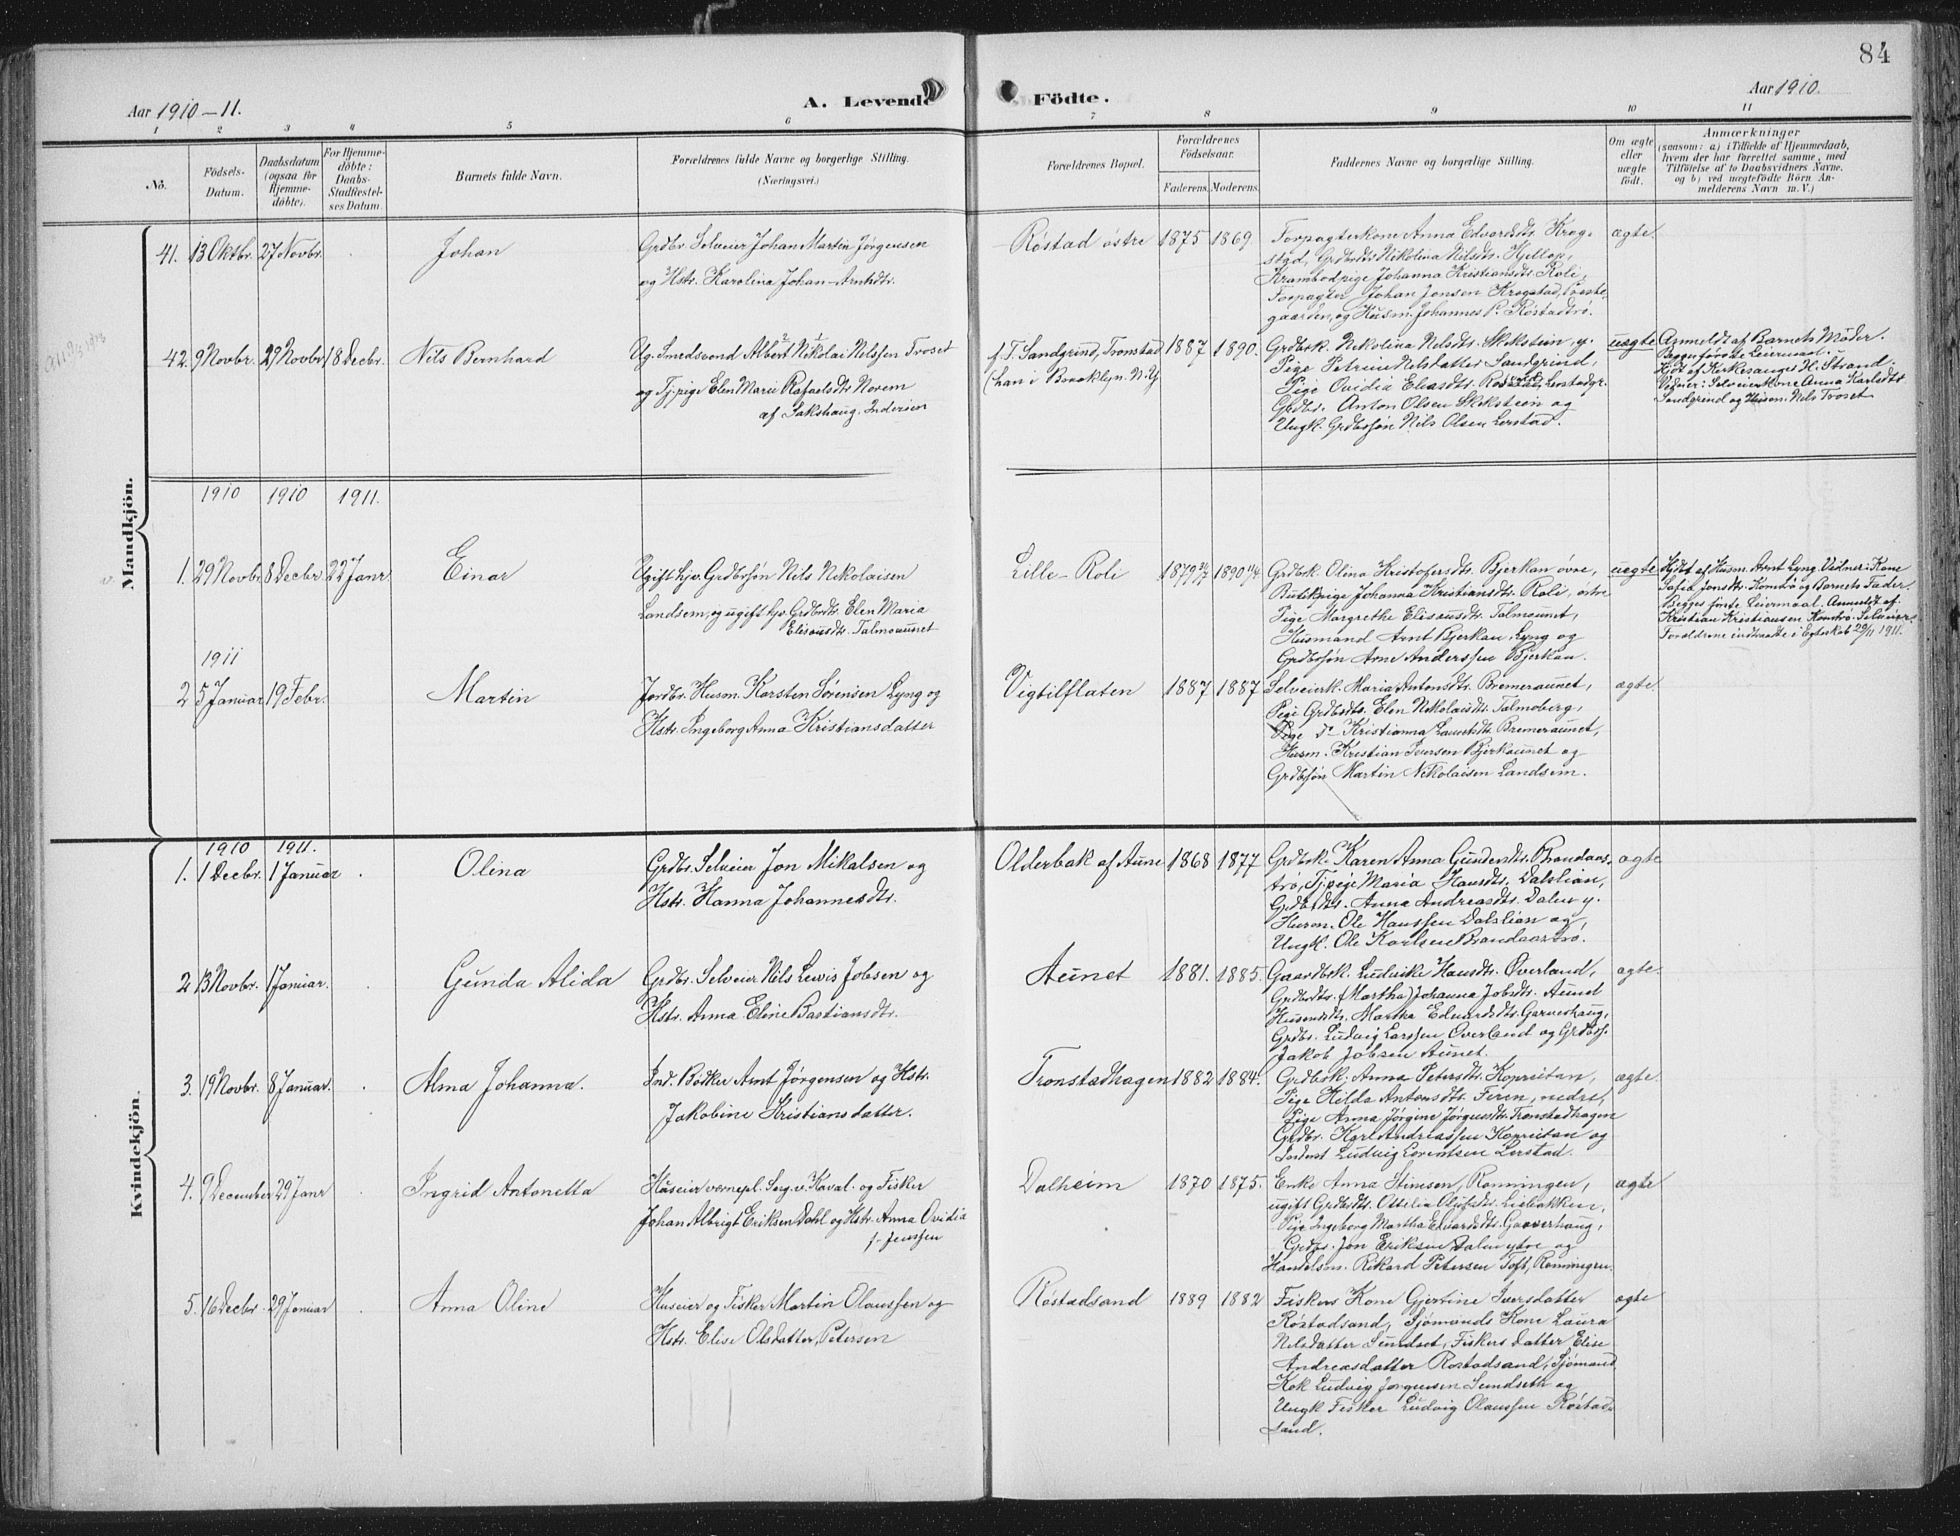 84
Aar 1910-11.
A. Levende
Födte.
Aar 1910.
1 2 3 4 5 6 7 8 9 10 11
No.
Födsels-
Datum.
Daabsdatum
(ogsaa for
Hjemme-
döbte).
For Hjemme-
döbte:
Daabs-
Stadfæstel-
ses Datum.
Barnets fulde Navn.
Forældrenes fulde Navne og borgerlige Stilling.
(Næringsvei.)
Forældrenes Bopæl.
Forældrenes
Födselsaar.
Faderens.
Moderens.
Faddernes Navne og borgerlige Stilling.
Om ægte
eller
uægte
födt.
Anmærkninger
(saasom: a) i Tilfælde af Hjemmedaab,
hvem der har forrettet samme, med
Tilföielse af to Daabsvidners Navne,
og b) ved uægtefödte Börn An-
melderens Navn m. V.)
Mandkjön.
41. 13 Oktbr. 27 Novbr.
Johan
Grdbr. Selveier Johan Martin Jørgensen
og Hstr. Karolina Johan-Arntsdtr.
Røstad østre
1875 1869.
Forpagterkone Anna Edvardsdtr. Krog-
stad, Grdbrdtr. Nikolina Nilsdtr. Hjellop,
Krambodpige Johanna Kristiansdtr. Roli,
Forpagter Johan Jonsen Krogstad, Præste-
gaarden, og Husm. Johannes P. Røstadtrø.
ægte.
42. 9 Novbr. 27 Novbr. 18 Decbr.
Nils Bernhard
Ug. Smedsvend Albert Nikolai Nilssen Troset
og Tj.pige Elen Marie Rafaelsdtr. Norem
af Sakshaug, Inderøen
f. T. Sandgrind, Tronstad
(han i Brooklyn. N.Y.
1887 1890.
Grdbrk. Nikolina Nelsdtr. Skekstein, y.
Pige Petrine Nelsdatter Sandgrind,
Pige Ovidia Eliasdtr. Lerstadgr.
Grdbr. Anton Olsen Skekstein og
Ungk. Grdbrsøn Nils Olsen Lerstad.
uægte
Anmeldt af Barnets Moder.
Begges første Leiermaal.
Hjdt af Kirkesanger H. Strand.
Vidner: Selveierkone Anna Karlsdtr.
Sandgrind og Husm. Nils Troset
1910 1910 1911.
1. 29 Novbr. 8 Decbr. 22 Janr.
Einar
Ugift hjv. Grdbrsøn Nils Nikolaisen
Landsem, og ugift hjv. Grdbrdtr. Elen Maria
Elisæusdtr. Talmoaunet
Lille-Roli
1879 1890
Grdbrk. Olina Kristofersdtr. Bjerkan øvre,
Butikpige Johanna Kristiansdtr. Roli, østre
Pige Margrethe Elisæusdtr. Talmoaunet,
Husmand Arnt Bjerkan, Lyng og
Grdbrsøn Arne Anderssen Bjerkan.
uægte
Hjdt af Husm. Arnt Lyng. Vidner: Kone
Sofia Jonsdtr. Komtrø og Barnets Fader.
Begges første Leiermaal. Anmeldt af
Kristian Kristiansen Komtrø. Selveier
Forældrene indtraadte i Egteskab 29/11 1911.
1911
2 5 Januar 19 Febr.
Martin
Jordbr. Husm. Karsten Sørensen Lyng og
Hstr. Ingeborg Anna Kristiansdatter
Vigtilflaten
1887 1887
Selveierk. Maria Antonsdtr. Bremeraunet,
Pige Grdbrdtr. Elen Nikolaisdtr. Talmoberg,
Pige do Kristianna Lauritsdtr. Bremeraunet,
Husm. Kristian Iversen Bjerkaunet og
Grdbrsøn Martin Nikolaisen Landsem.
ægte.
Kvindekjön.
1910 1911.
1. 1 Decbr. 1 Januar
Olina
Grdbr. Selveier Jon Mikalsen og
Hstr. Hanna Johannesdtr.
Olderbak af Aune
1868 1877
Grdbrk. Karen Anna Gundersdtr. Brandaas-
trø, Tj.pige Maria Hansdtr. Dalslian,
Grdbrdtr. Anna Andreasdtr. Dalen y.
Husm. Ole Hanssen Dalslian og
Ungk. Ole Karlsen Brandaastrø.
ægte
2 13 Novbr. 1 Januar.
Gunda Alida
Grdbr. Selveier Nils Lewis Jobsen og
Hstr. Anna Eline Bastiansdtr.
Aunet
1881. 1885.
Gaardbrk. Ludvike Hansdtr. Overland,
Grdbrdtr. (Martha) Johanna Jobsdtr. Aunet
Husmdtr. Martha Edvardsdtr. Garneshaug,
Grdbr. Ludvig Larssen Overland og Grdbrs.
Jakob Jobsen Aunet.
ægte.
3. 19 Novbr. 8 Januar.
Alma Johanna.
Ind. Bødker Arnt Jørgensen og Hstr.
Jakobine Kristiansdatter.
Tronstadhagen
1882 1884.
Grdbrk. Anna Petersdtr. Kopreitan,
Pige Hilda Antonsdtr. Feren, nedre,
Pige Anna Jørgine Jørgensdtr. Tronstadhagen
Grdbr. Karl Andreassen Kopreitan og
Ludvig Lorentsen Lerstad.
ægte.
4. 9 December 29 Janr.
Ingrid Antonetta
Huseier vernepl. Serg. v. Kaval. og Fisker
Johan Albrigt Eriksen Dahl og Hstr. Anna Ovidia
f. Jenssen
Dalheim
1870 1875.
Enke Anna Simsen, Rønningen,
ugift Grdbrdtr. Ottilia Olufsdtr. Leiebakken,
Pige Ingeborg Martha Edvardsdtr. Gaaverhaug,
Grdbr. Jon Eriksen Dalen ytre og
Handelsm. Rikard Petersen Toft, Rønningen.
ægte
5. 16 Decbr. 29 Januar
Anna Oline
Huseier og Fisker Martin Olaussen og
Hstr. Elise Olsdatter, Petersen
Røstadsand
1889 1882
Fiskers Kone Gjertine Iversdatter
Røstadsand, Sjømands Kone Laura
Nilsdatter Sundset, Fiskers Datter Elise
Andreasdatter Røstadsand, Sjømand
Kok Ludvig Jørgensen Sundseth og
Ungk. Fisker Ludvig Olaussen Røstad-
sand.
ægte